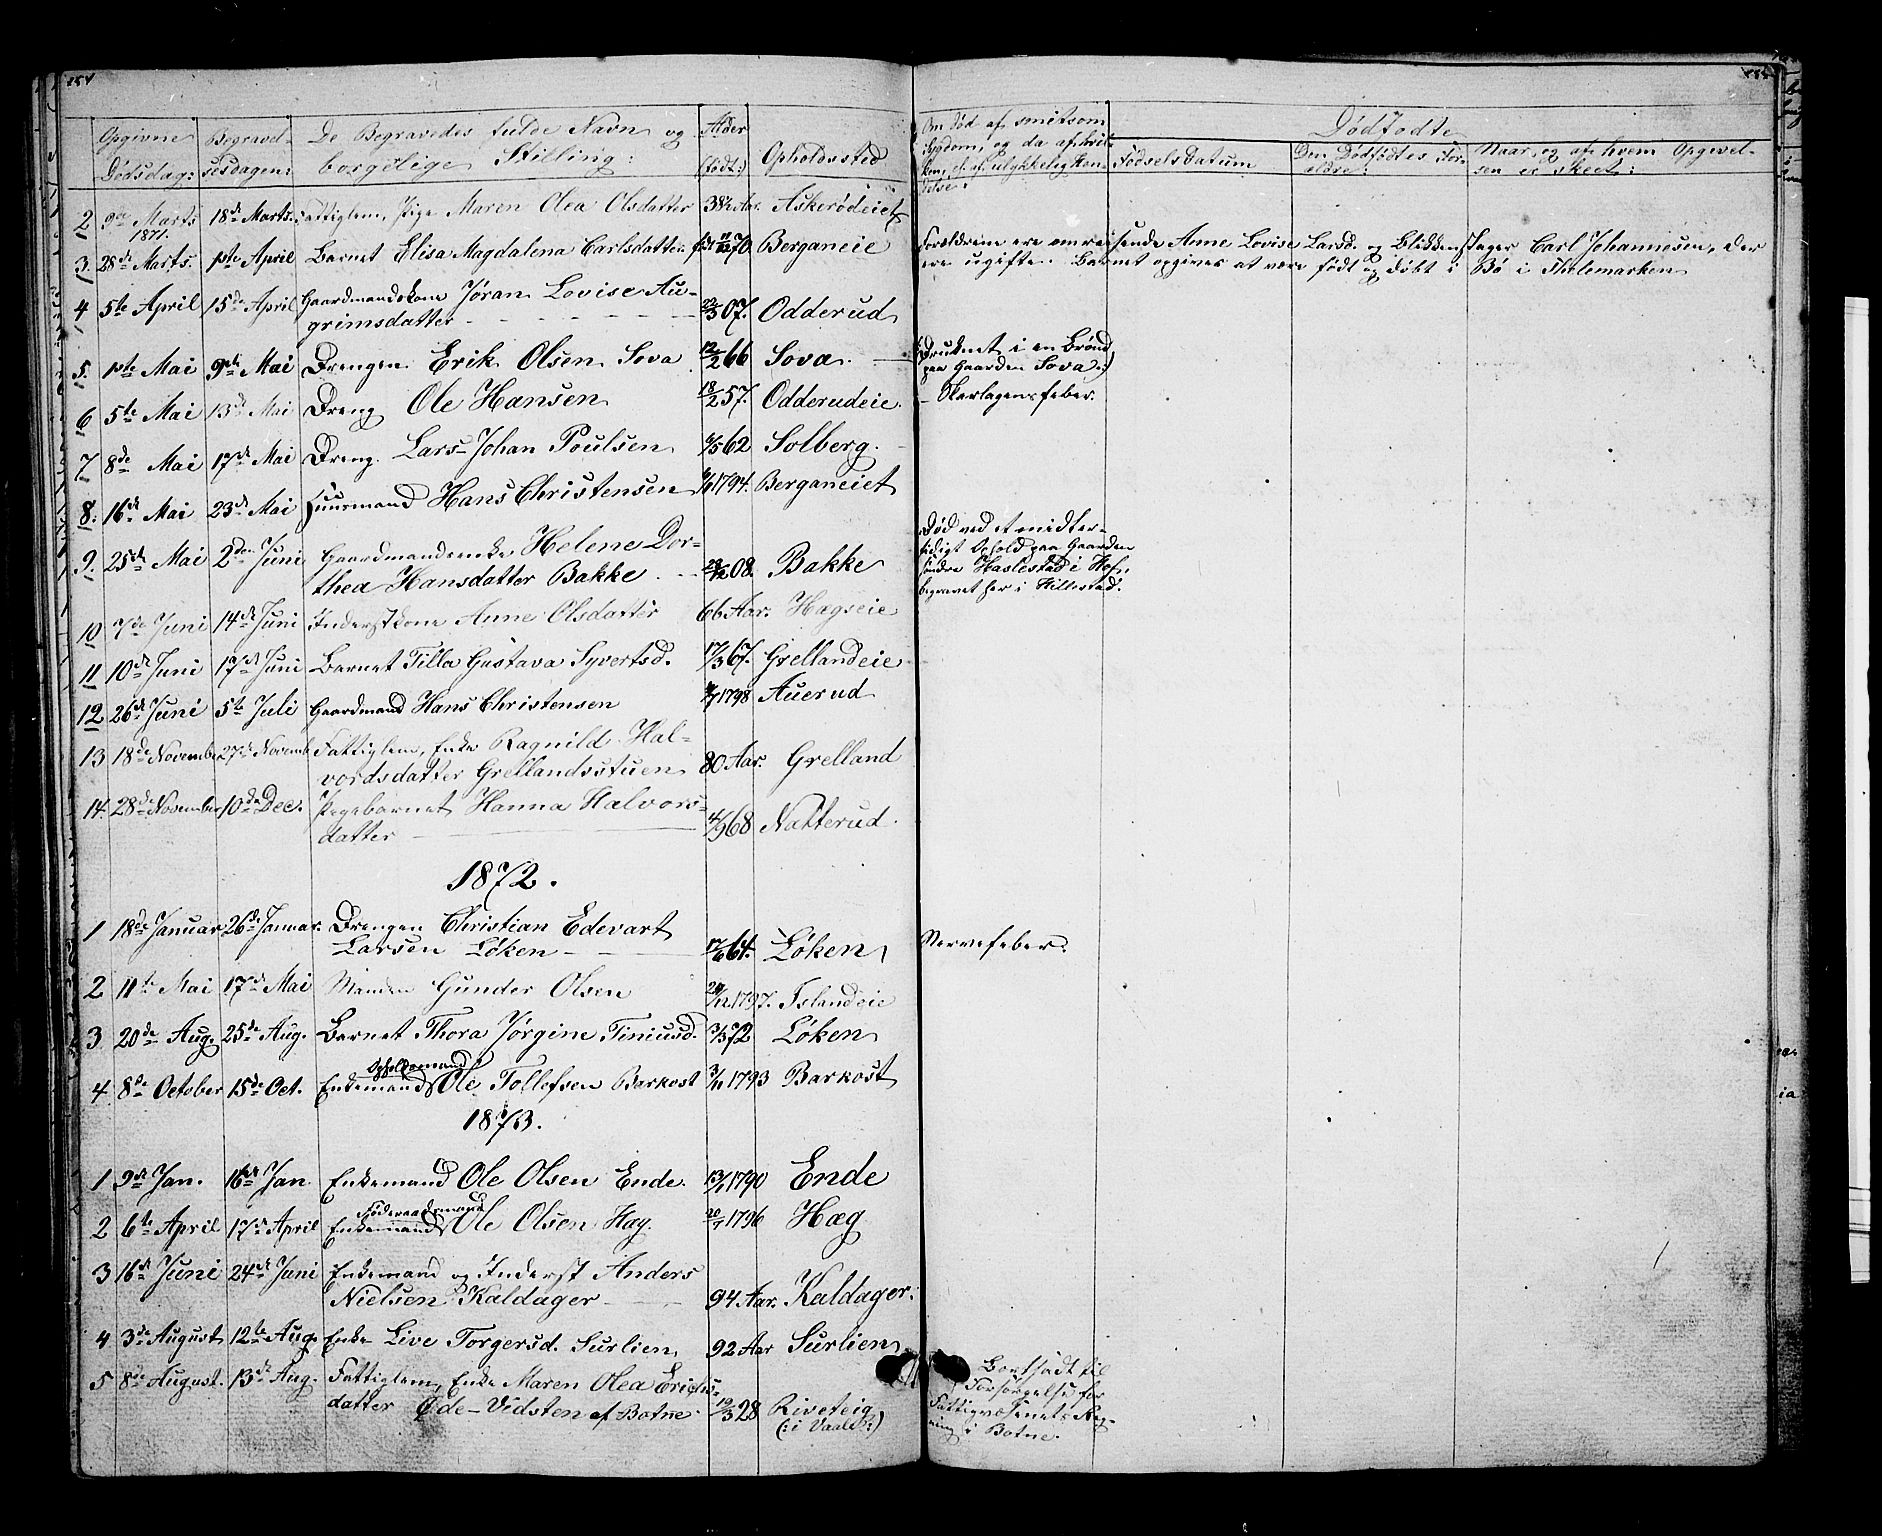 154
155
Opgivne Dødsdag: Begravel-sesdagen: De Begravedes fulde Navn og borgelige Stilling: Alder (født:) Opholdssted
Om død af smitsom Sygdom, og da af hvil-ken, el. af ulykkelig Hæn-delse: Dødfødte
Fødselsdatum Den Dødfødtes For-ældre: Naar, og af hvem Opgivel-sen er skeet:
2 9de Marts 1871. 18de Marts. Fattiglem, Pige Maren Olea Olsdatter 38½ Aar. Askerødeiet
3. 28de Marts. 1ste April Barnet Elisa Magdalena Carlsdatter. 70. Berganeie Forældrene ere omreisende Anne Lovise Larsd. og Blikkenslager Carl Johannesen, der
ere ugifte. Barnet opgives at være født og døbt i Bø i Thelemarken
4 5te April 15de April Gaardmandskone Jøran Lovise Au-
grimsdatter 22/3 07. Odderud
5. 1ste Mai 9de Mai Drengen Erik Olsen Sova 12/2 66 Sova. Druknet i en Brønd
paa Gaarden Sova:)
6 5te Mai 13de Mai Dreng Ole Hansen 18/2 57. Odderudeie. - Skarlagensfeber.
7 8de Mai 17de Mai Dreng. Lars Johan Poulsen 6/5 62 Solberg.
8. 16de Mai 23de Mai Huusmand Hans Christensen 1794. Berganeiet
9. 25de Mai 2den Juni Gaardmandsenke Helene Dor-
thea Hansdatter Bakke 08. Bakke
Død ved et midler-
tidigt Ophold paa Gaarden
søndre Haslestad i Hof,
begravet her i Hillestad.
10 7de Juni 14de Juni Inderstkone Anne Olsdatter 66 Aar. Hagseie
11 10de Juni 17de Juni Barnet Tilla Gustava Syvertsd. 17/3 67. Grellandeie
12 26de Juni 5te Juli Gaardmand Hans Christensen 1798 Auerud
13 18de November 27de Novemb. Fattiglem, Enke Ragnild Hal-
vordsdatter Grellandsstuen 80 Aar. Grelland
14. 28de November 10de Dec. Pigebarnet Hanna Halvors-
datter 4/9 68 Natterud.
1872.
1 18de Januar 26de Januar. Drengen Christian Edevart
Larsen Løken 17/6 64. Løken Nervefeber.
2 11te Mai 17de Mai Manden Gunder Olsen 1797. Islandeie
3 20de Aug. 25de Aug. Barnet Thora Jørgine Tiniusd. 3/3 72 Løken
Opholdsmand
4 8de October 15de Oct. Enkemand Ole Tollefsen Barkost 3/11 1793 Barkost
1873.
1 9de Jan. 16de Jan Enkemand Ole Olsen Ende. 13/1 1790 Ende
Føderaadsmand
2 6te April 17de April Enkemand Ole Olsen Hæg. 20/7 1796 Hæg
3 16de Juni 24de Juni Enkemand og Inderst Anders
Nielsen Kaldager 94 Aar. Kaldager.
4 3de August 12te Aug. Enke Live Torgersd. Surlien 92 Aar Surlien
5 8de August. 13de Aug. Fattiglem, Enke Maren Olea Erichs-
datter Øde-Vidsten af Botne 19/3 28 Riveteig
(: i Vaale:)
Bortsadt til
Forsørgelse for
Fattigvæsenets Reg-
ning i Botne.